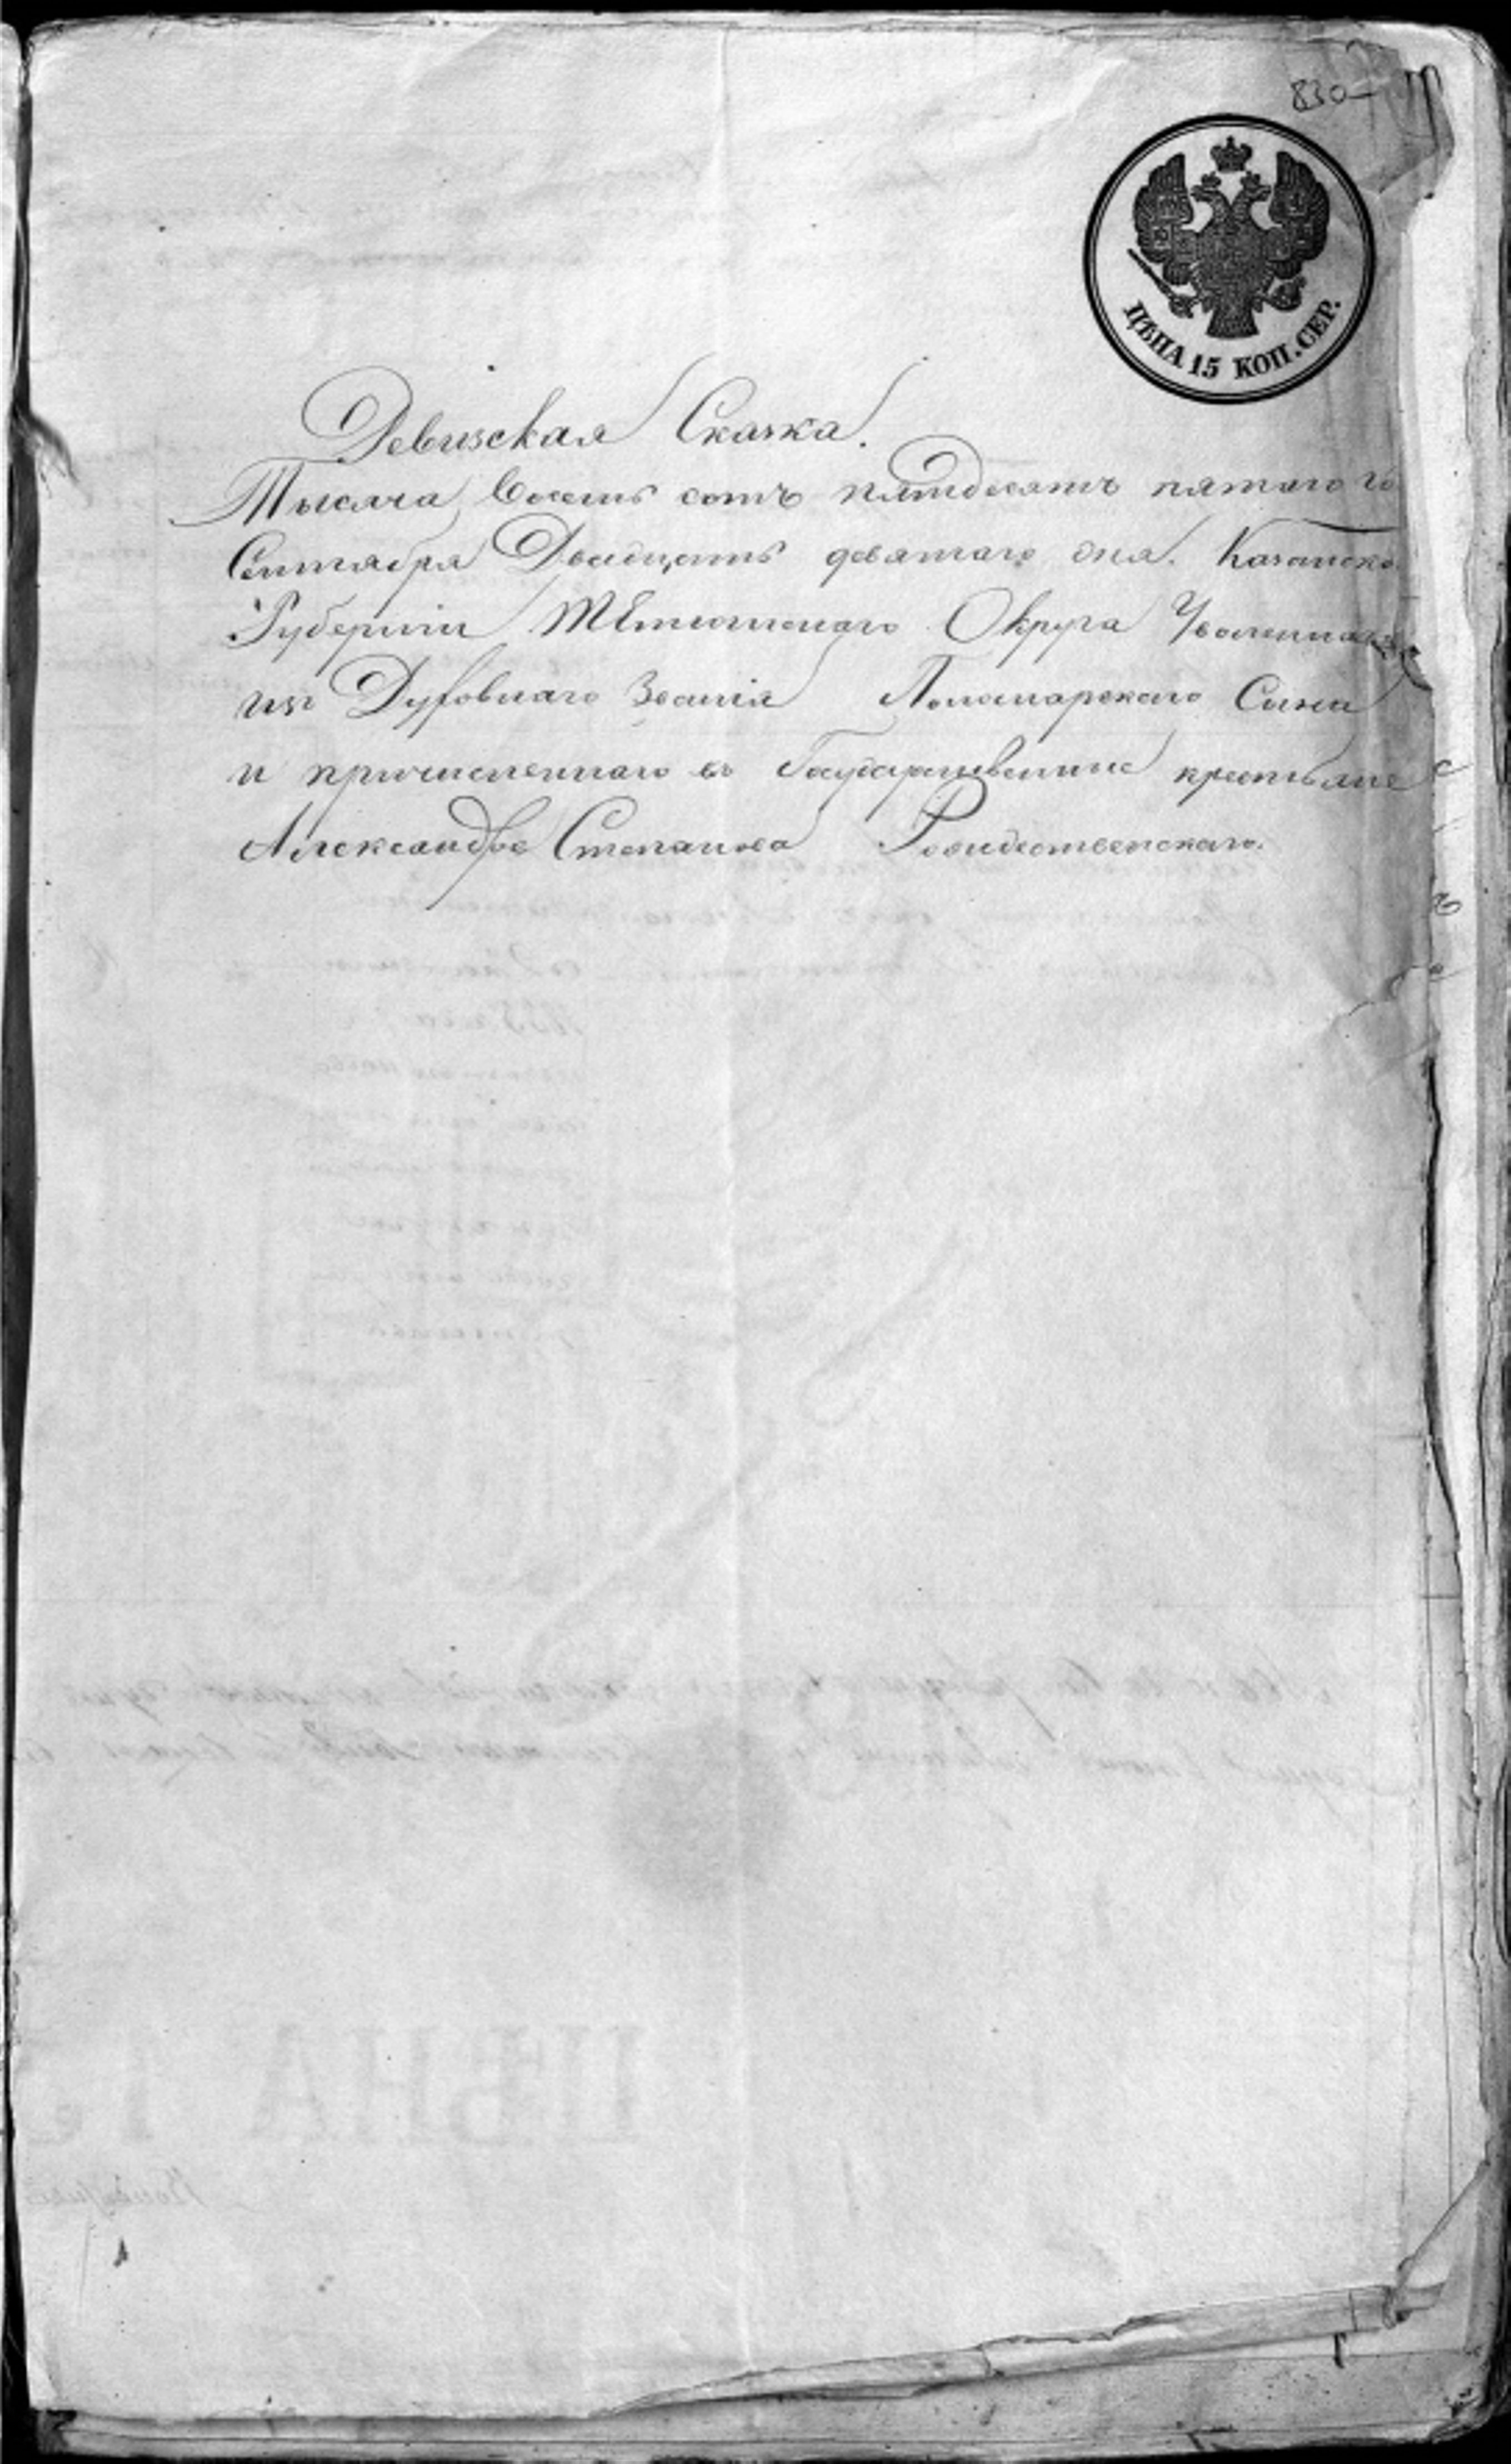 830
ЦѢНА 15 КОП. СЕР.
Ревизская Сказка.
Тысяча восемь сотъ пятьдесятъ пятаго го
Сентября Двадцать девятаго дня. Казанско
Губерніи Тѣтюшскаго Округа Уволеннаго
изъ Духовнаго Званія Пономарскаго Сына
и причисленнаго въ Государственные крестьяне
Александра Степанова Рождественскаго.